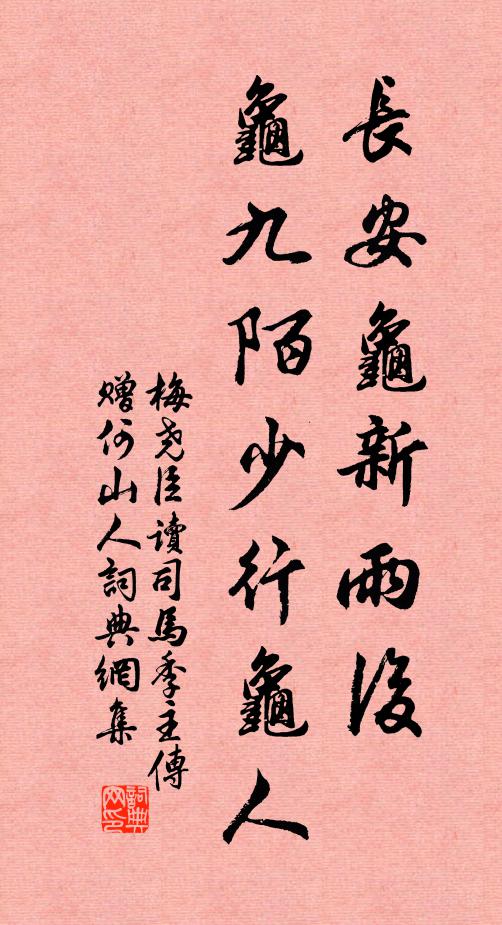 長安龜新雨後
龜九陌少行龜人
梅堯臣讀司馬季主傳
贈何山人詞典網集
詞典網印